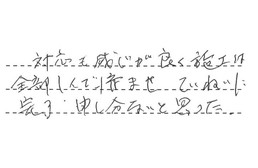 対応も感じが良く施工は
全部しんで頂ませ ていねいに
完了 申し分ないと思った。